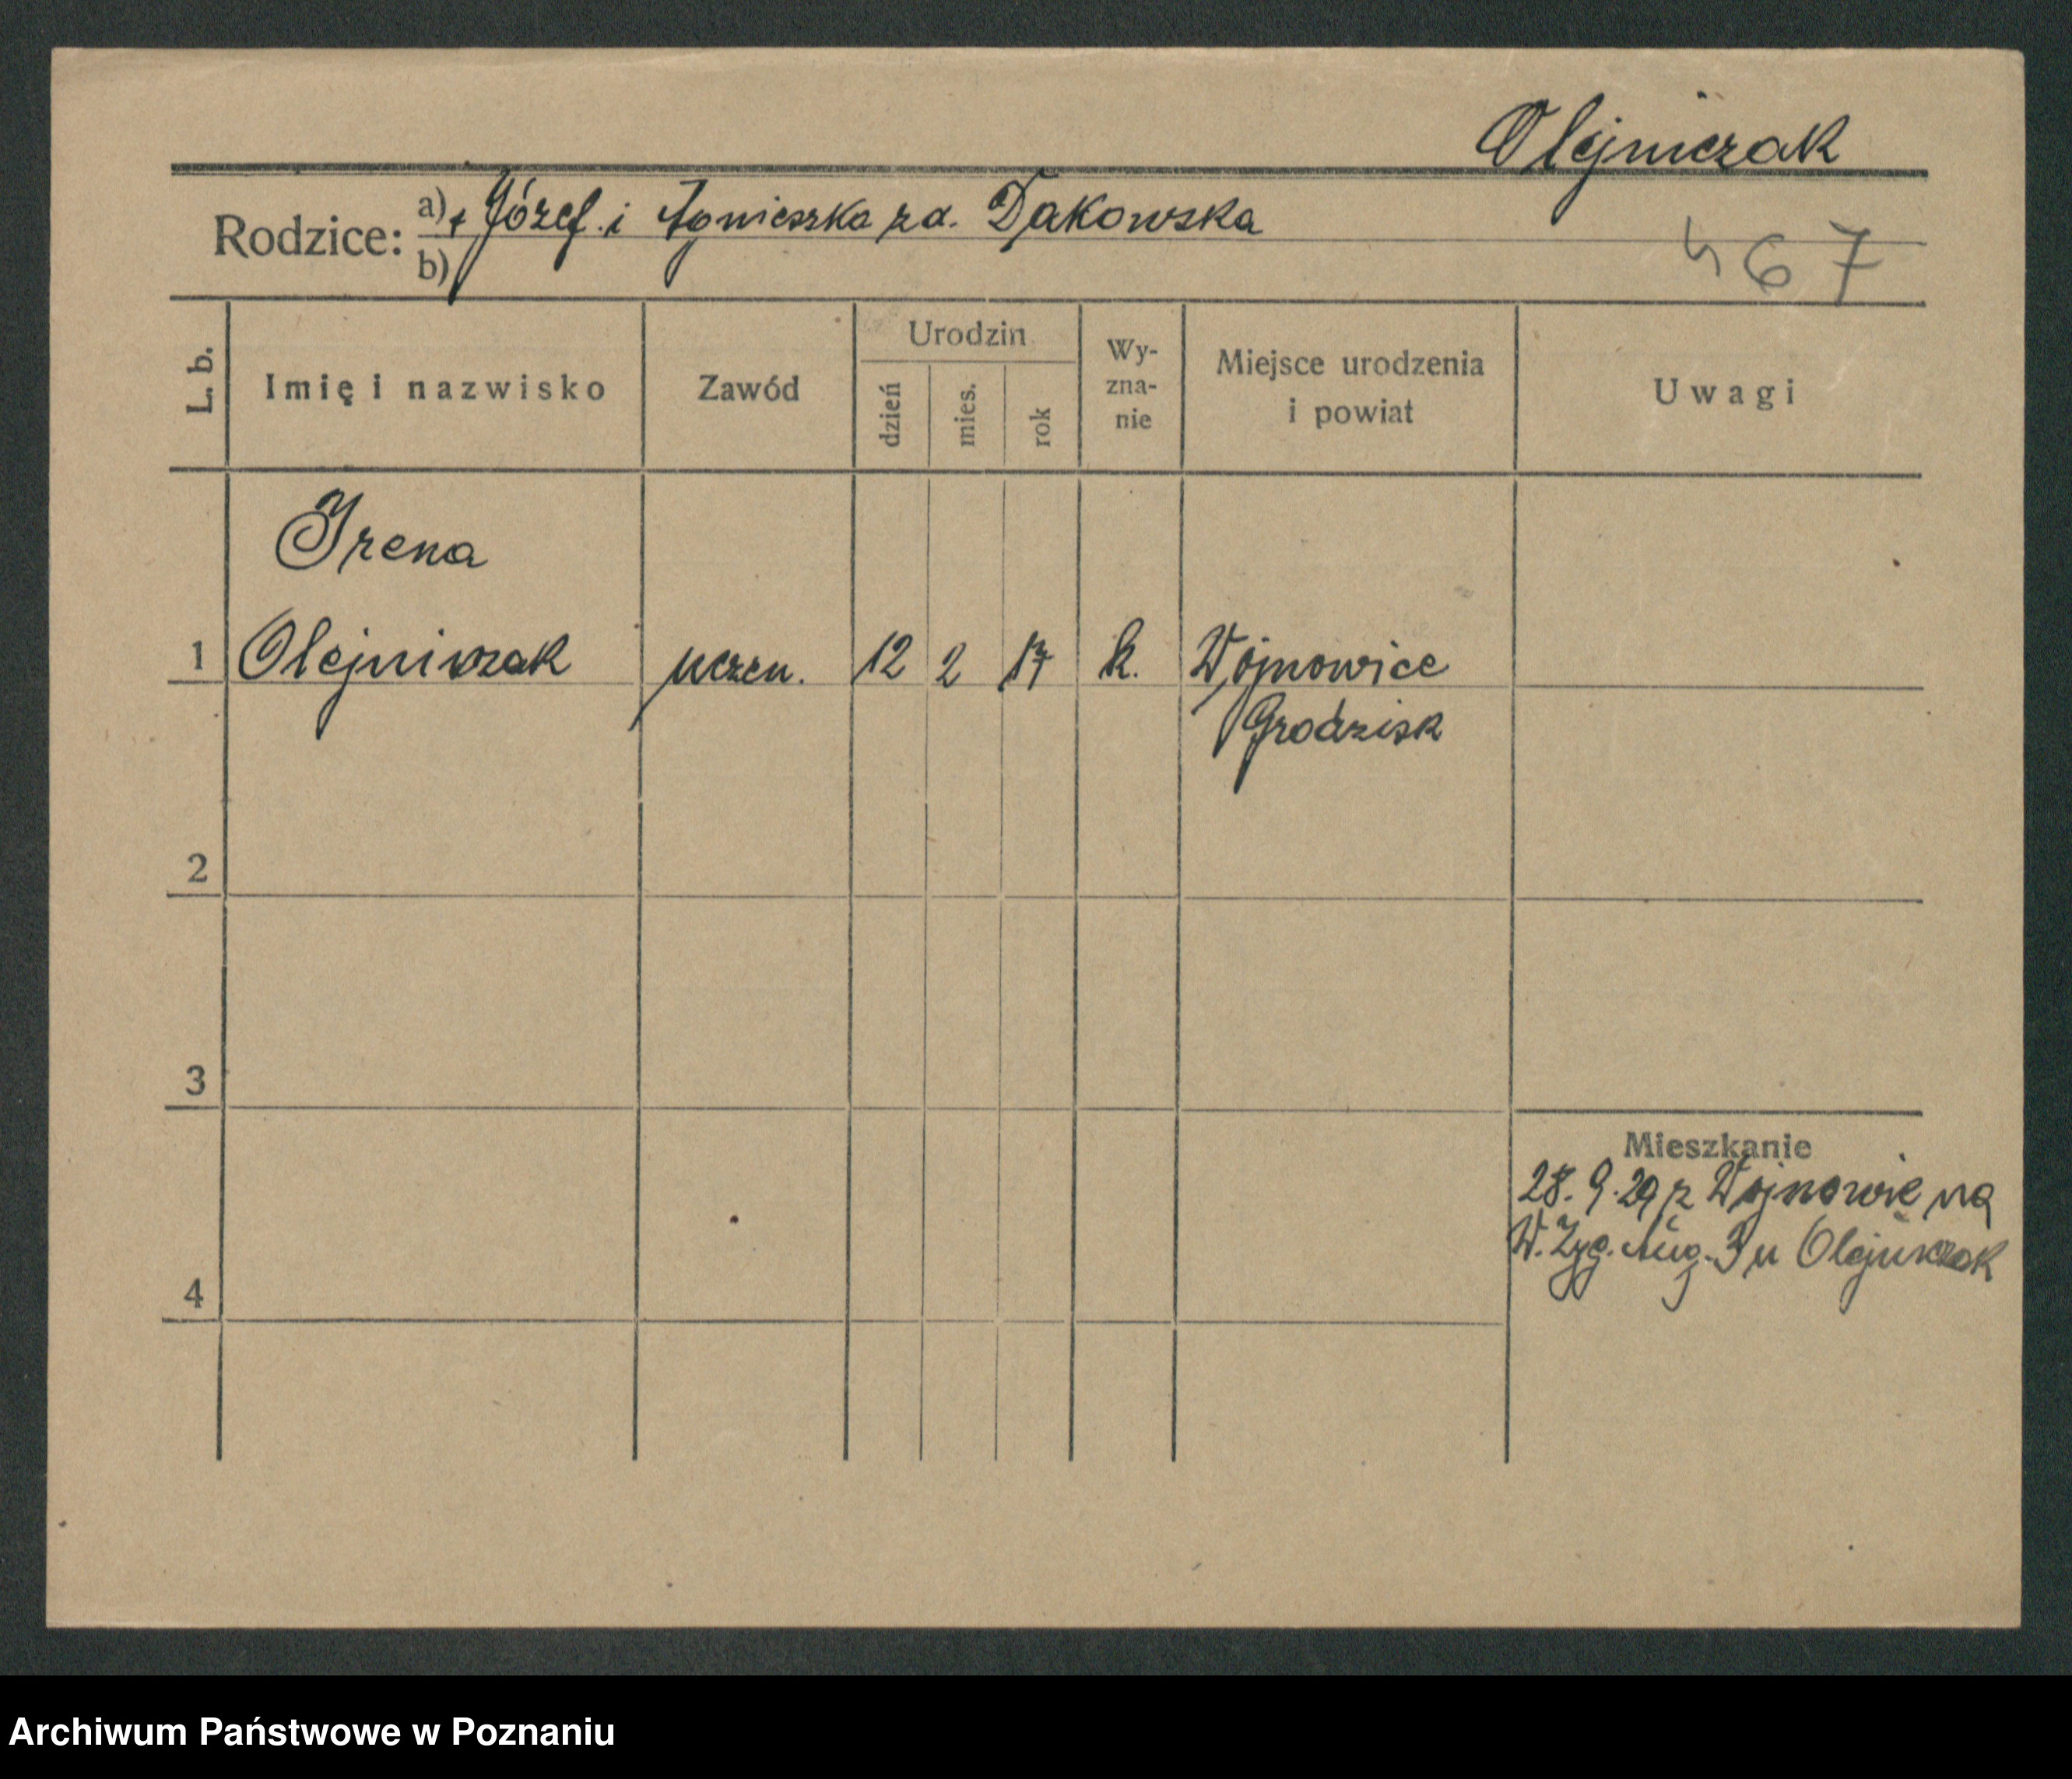 Olejniczak
Rodzice: a) + Józef i Agnieszka zd. Dakowska
b)
467
L. b. Imię i nazwisko Zawód Urodzin dzień mies. rok Wy-zna-nie Miejsce urodzenia i powiat Uwagi
Irena
1 Olejniczak uczen. 12 2 17 k. Wojnowice
Grodzisk
2
3
Mieszkanie
28.9.29 z Wojnowic na
W. Zyg. Aug. 3 u Olejniczak
4
Archiwum Państwowe w Poznaniu